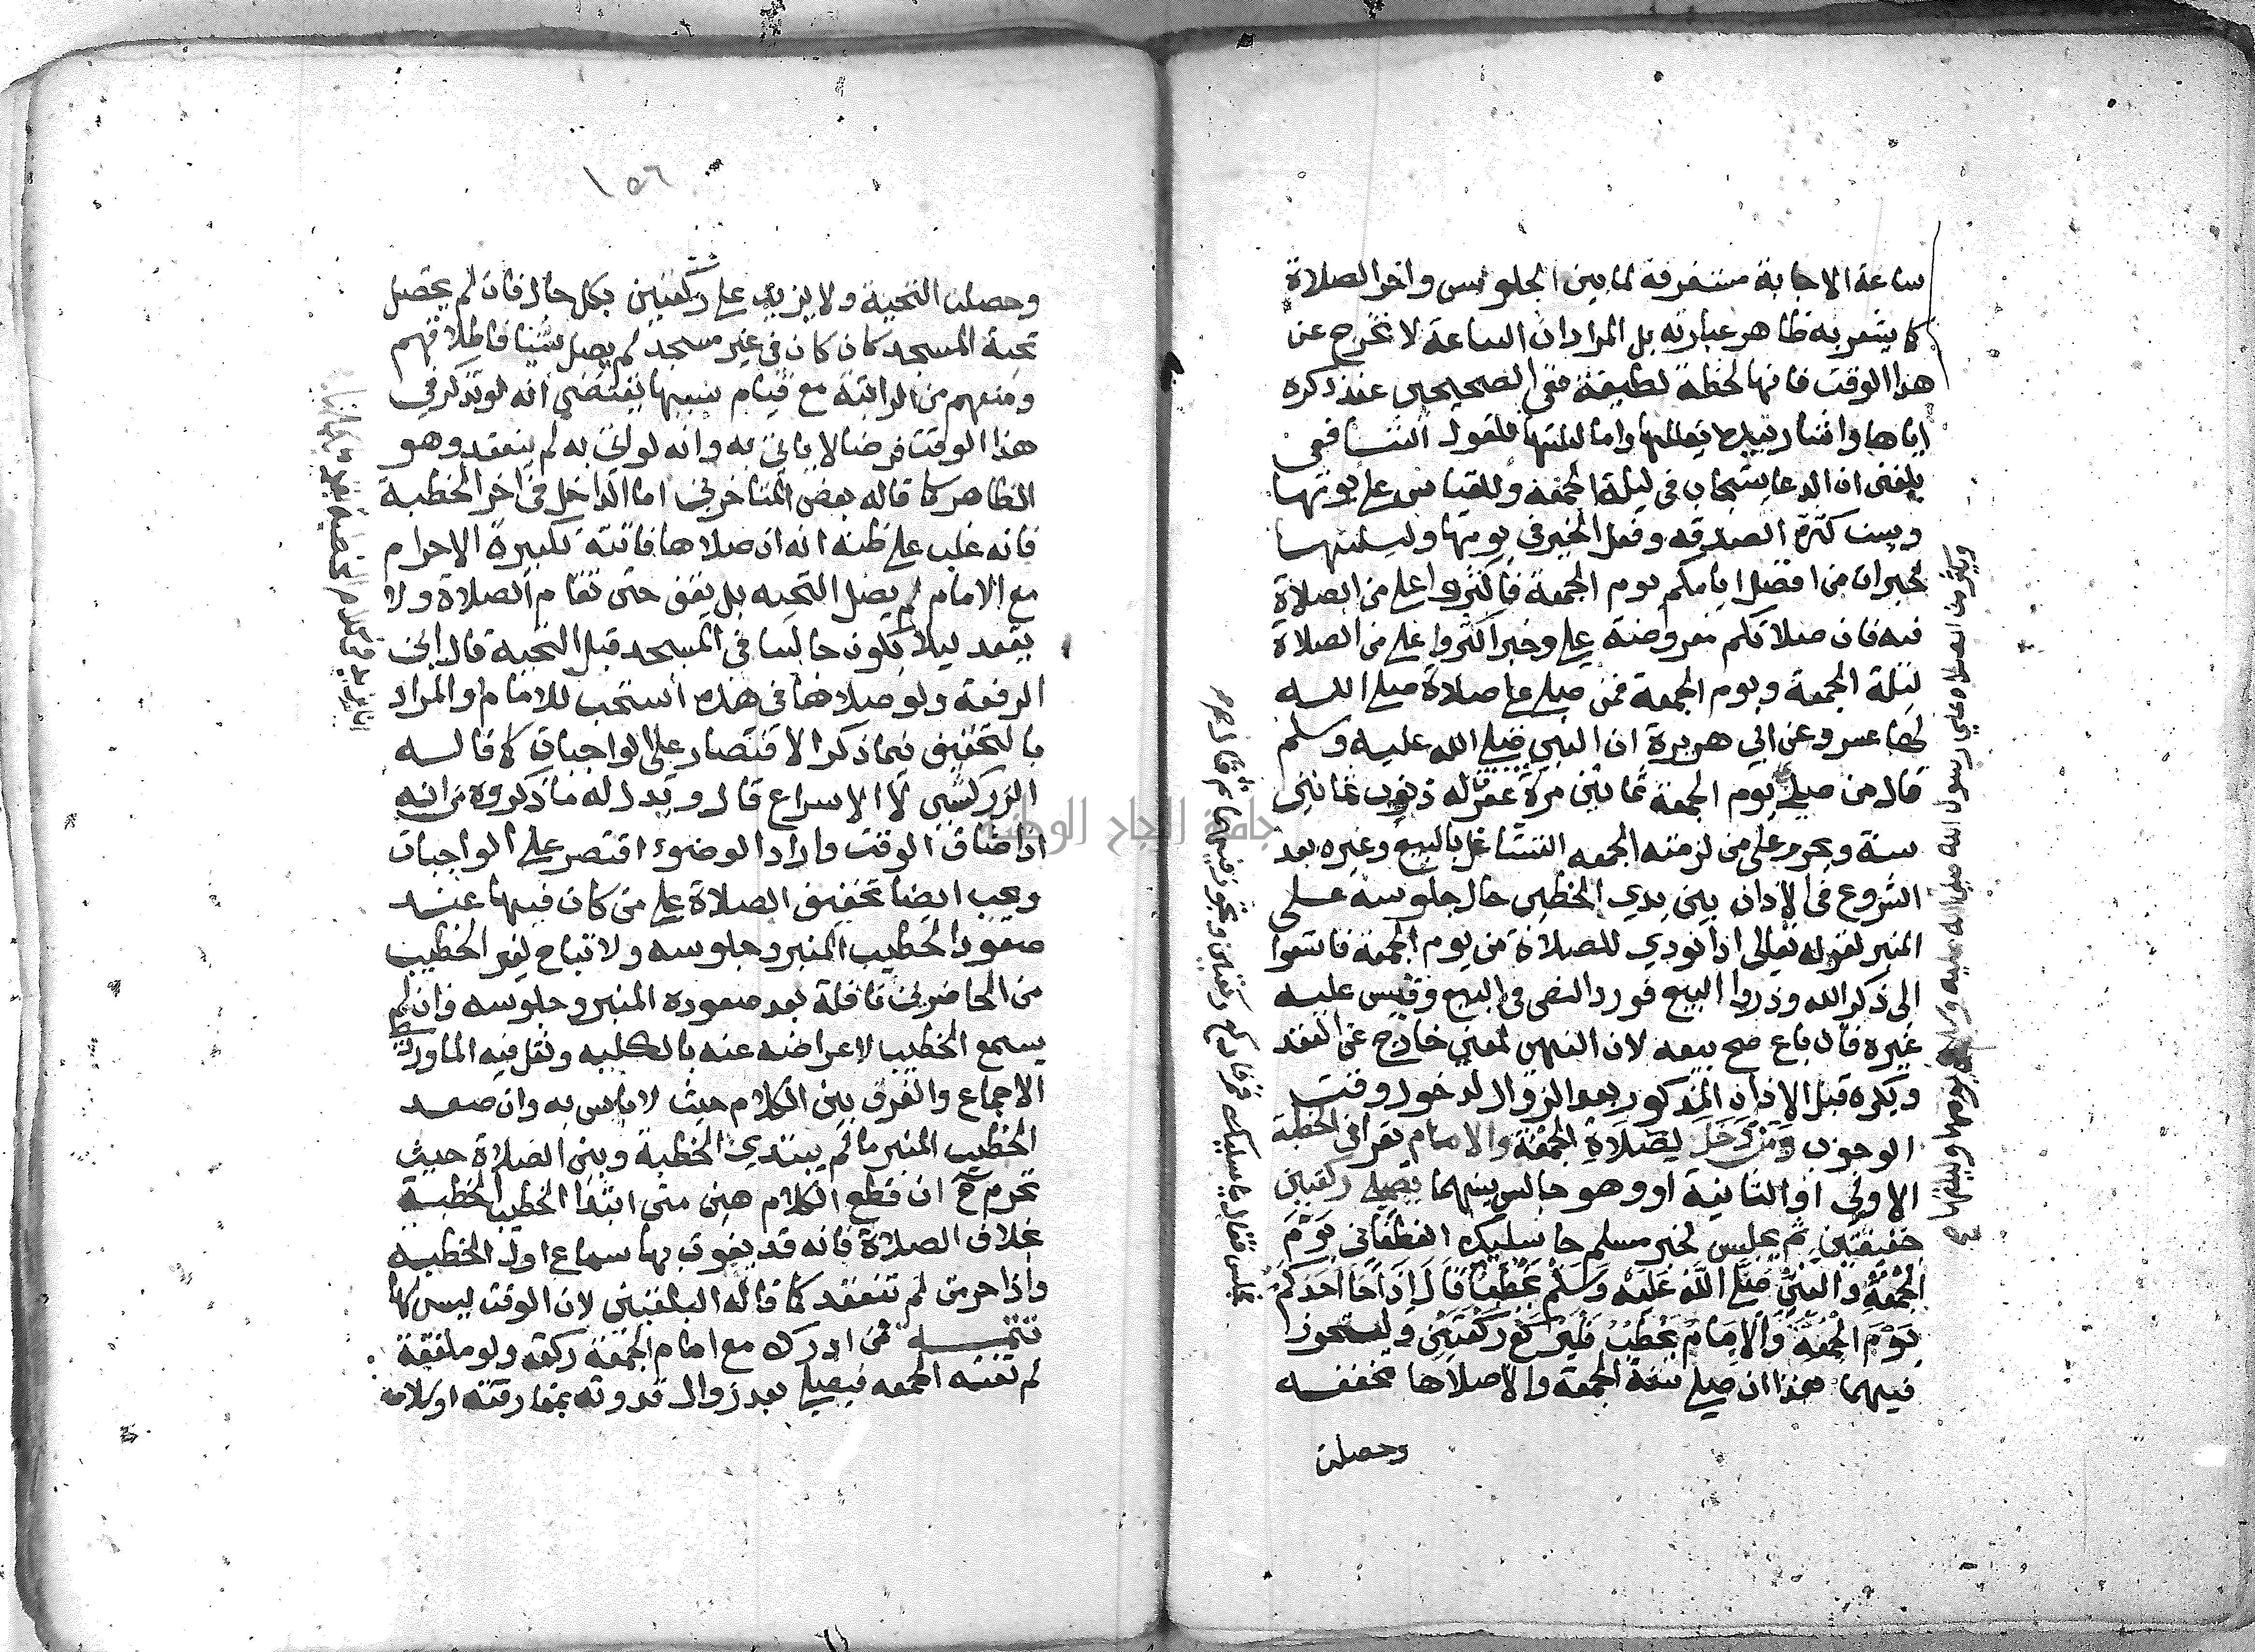 ساعة الاجابة مستغرقة لما بين الجلوس واخر الصلاة
كما يشعر به ظاهر عبارته بل المراد ان الساعة لا تخرج عن
هذا الوقت فانها لحظة لطيفة ففي الصحيحين عند ذكره
اياها واشار بيده يقللها واما ليلتها فلقول الشافعي
بلغني ان الدعا يستجاب في ليلة الجمعة وللقياس على يومها
ويسن كثرة الصدقه وفعل الخير في يومها وليلتها
لخبر ان من افضل ايامكم يوم الجمعة فاكثروا علي من الصلاة
فيه فان صلاتكم معروضة علي وخبر اكثروا علي من الصلاة
ليلة الجمعة ويوم الجمعة فمن صلى علي صلاة صلى الله
بها عشر وعن ابي هريرة ان النبي صلى الله عليه وسلم
قال من صلى يوم الجمعة ثمانين مرة غفر له ذنوب ثمانين
سنة ويحرم على من لزمته الجمعه التشاغل بالبيع وغيره بعد
الشروع في الاذان بين يدي الخطيب حال جلوسه على
المنبر لقوله تعالى اذا نودي للصلاة من يوم الجمعة فاسعوا
الى ذكر الله وذروا البيع فورد النص في البيع وقيس عليه
غيره فان باع صح بيعه لان النهي لمعني خارج عن العقد
ويكره قبل الاذان المذكور بعد الزوال لدخول وقت
الوجوب وَمَنْ دَخَلَ لِصَلَاةِ الجُمْعَة والامام يقرا في الخطبة
الاولى او الثانية او وهو جالس بينهما يصلي ركعتين
خفيفتين ثم يجلس لخبر مسلم جا سليك الغطفاني يَوْمَ
الجُمْعَةِ والنبيُّ صَلَّى اللَّه عَلَيْه وَسَلَّمْ يَخْطُبُ فَقَالَ اِذَا جَا اَحَدُكُمْ
يَوْمَ الجُمْعَة وَالامَامُ يَخْطُبُ فَلْيَرْكَعْ رَكْعَتَيْنِ وليتجوز
فيهما هذا ان صلى سنة الجمعة والا صلاها مخففه
وحصلت
ويكثر من الصلاة علي رسول الله صلى الله عليه وسلم يومها وليلتها صح
فجلس فقال يا سليك قم فاركع ركعتين وتجوز فيهما ثم قال صح
١٥٦
وحصلت التحية ولا يزيد على ركعتين بكل حال فان لم يحصل
تحية المسجد كان كان في غير مسجد لم يصل شيئا فاطلاقهم
ومنعهم من الراتبة مع قيام سببها يقتضي انه لو تذكر في
هذا الوقت فرضا لا ياتي به وانه لو اتى به لم ينعقد وهو
الظاهر كما قاله بعض المتاخرين اما الداخل في اخر الخطبة
فانه غلب على ظنه انه ان صلاها فاتته تكبيرة الاحرام
مع الامام لم يصل التحيه بل يقف حتى تقام الصلاة ولا
يقعد ليلا يكون جالسا في المسجد قبل التحية قال ابن
الرفعة ولو صلاها في هذه استحب للامام والمراد
بالتخفيف فيما ذكر الاقتصار على الواجبات كما قاله
الزركشي لا الاسراع قال ويدل له ما ذكروه من انه
اذا ضاق الوقت واراد الوضوء اقتصر على الواجبات
ويجب ايضا تخفيف الصلاة على من كان فيها عند
صعود الخطيب المنبر وجلوسه ولا تباح لغير الخطيب
من الحاضرين نافلة بعد صعوده المنبر وجلوسه وان لم
يسمع الخطيب لاعراضه عنه بالكليه ونقل فيه الماوردي
الاجماع والفرق بين الكلام حيث لا باس به وان صعد
الخطيب المنبر ما لم يبتدي الخطبة وبين الصلاة حيث
تحرم ح ان قطع الكلام هين متى ابتدا الخطيب الخطبة
بخلاف الصلاة فانه قد يفوت بها سماع اول الخطبه
واذا حرمت لم تنعقد كما قاله البلقيني لان الوقت ليس لها
تتمه من ادرك مع امام الجمعة ركعة ولو ملفقة
لم تفته الجمعه فيصلي بعد زوال قدوته بمفارقته او سلامه